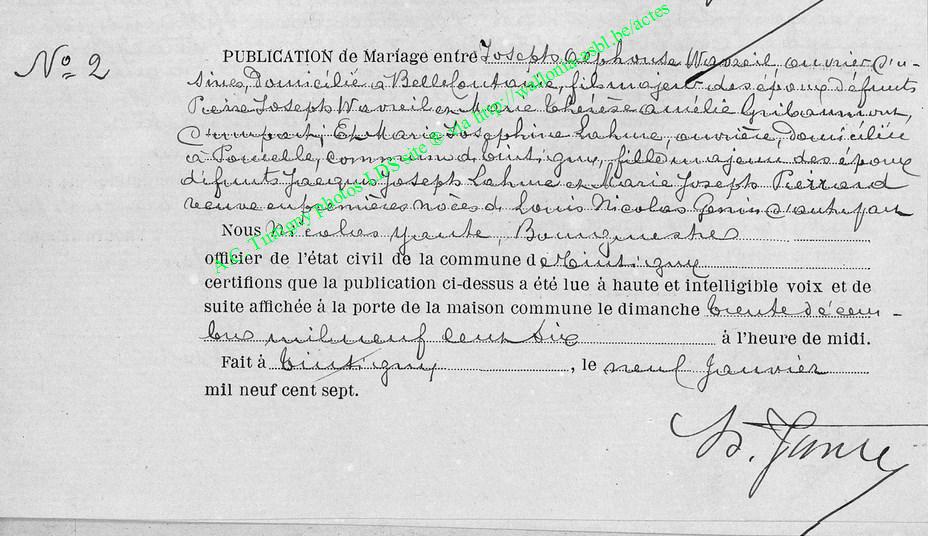 No 2
PUBLICATION de Mariage entre Joseph Alphonse Wavreil, ouvrier d'u-
sines, Domicilié à Bellefontaine, fils majeur des époux défunts
Pierre Joseph Wavreil et Marie Thérèse Amélie Gribaumont,
d'une part, Et Marie Joséphine Lahure, ouvrière, domiciliée
à Poncelle, commune de Tintigny, fille majeure des époux
défunts Jacques Joseph Lahure et Marie Joseph Pierrard
veuve en premières noces de Louis Nicolas Genin d'autre part
Nous Nicolas Yante, Bourgmestre
officier de l'état civil de la commune de Tintigny
certifions que la publication ci-dessus a été lue à haute et intelligible voix et de
suite affichée à la porte de la maison commune le dimanche trente décem-
bre mil neuf cent six à l'heure de midi.
Fait à Tintigny, le neuf Janvier
mil neuf cent sept.
N. Yante
A.C. Tintigny photos LDS site ® via http://wallonia.asbl.be/actes